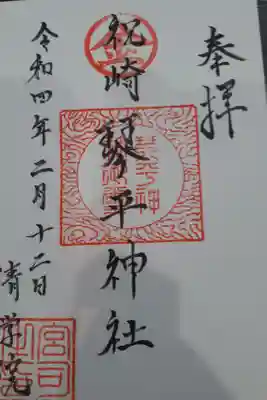 奉拝
祝崎琴平神社
令和四年二月十二日
清学院